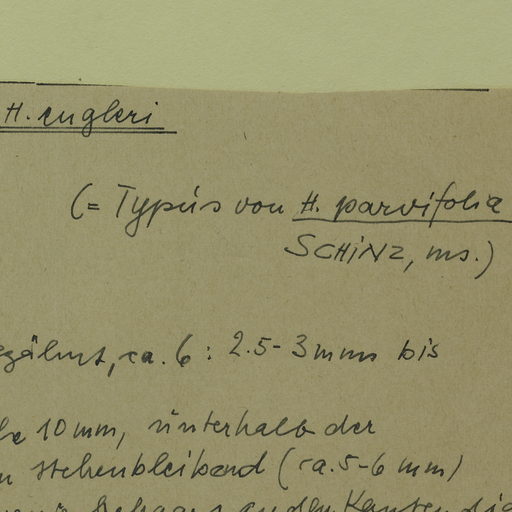 H. engleri
(= Typus von H. parvifolia
SCHINZ, ms.)
gezähnt, ca. 6 : 2.5-3mm bis
10 mm, unterhalb der
stehenbleibend (ca. 5-6 mm)
an den Kanten